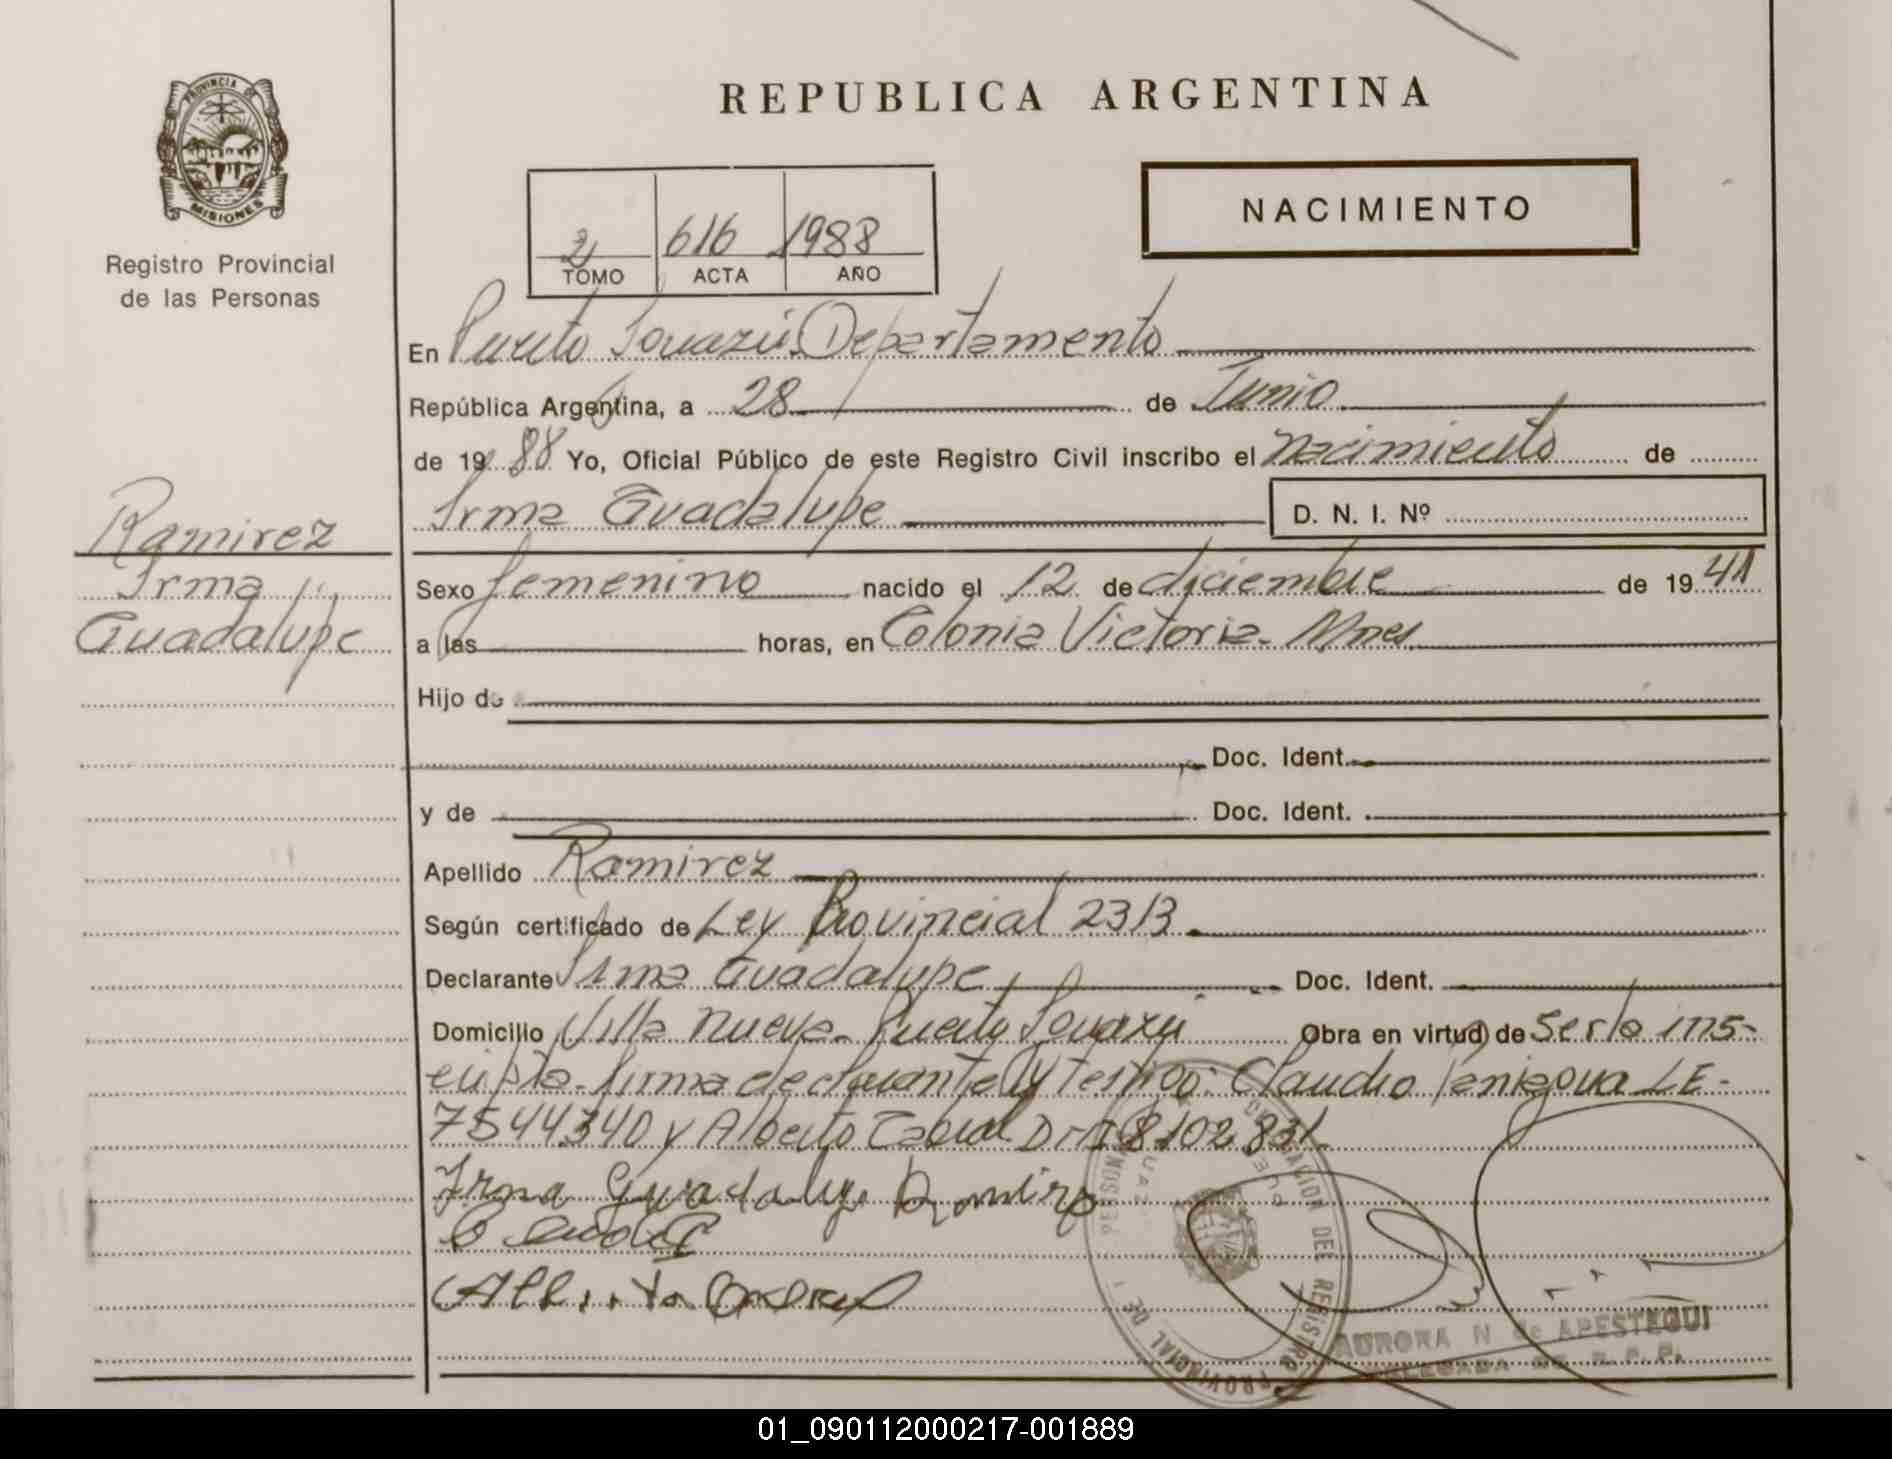 PROVINCIA DE
MISIONES
Registro Provincial
de las Personas
REPUBLICA ARGENTINA
NACIMIENTO
2 616 1988
TOMO ACTA AÑO
En Puerto Iguazú Departamento
República Argentina, a 28 de Junio
de 19 88 Yo, Oficial Público de este Registro Civil inscribo el nacimiento de
Irma Guadalupe D. N. I. Nº
Ramirez
Irma
Guadalupe
Sexo femenino nacido el 12 de diciembre de 19 41
a las horas, en Colonia Victoria- Mnes.
Hijo de
Doc. Ident.
y de Doc. Ident.
Apellido Ramirez
Según certificado de Ley Provincial 2313
Declarante Irma Guadalupe Doc. Ident.
Domicilio Villa Nueva- Puerto Iguazú Obra en virtud de Serlo ins-
cripto. firma declarante y Testigos: Claudio LE-
7544340 y Alberto Cabral D N I 8102831
Irma Guadalupe Ramirez
Alberto Cabral
DELEGACION DEL REGISTRO PROVINCIAL DE
AURORA N de APESTEGUI
DELEGADA DE R. P. P.
01_090112000217-001889